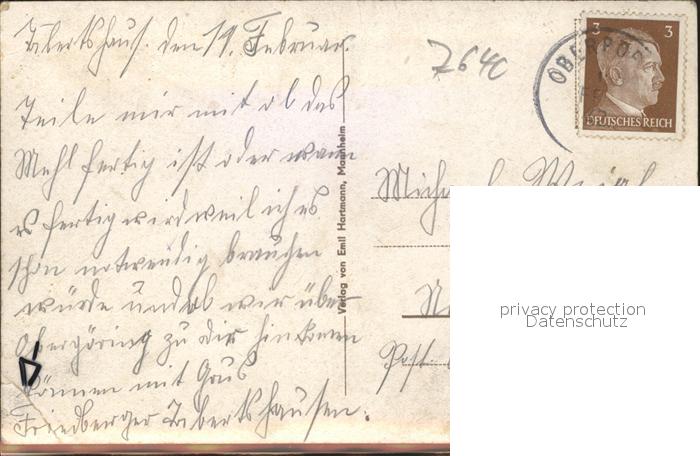 Ibertshaus. den 19. Februar.
Teile mir mit ob das
Mehl fertig ist oder wann
es fertig wird weil ich es
schon notwendig brauchen
würde und ob wir über
zu dir hin
können mit
Friedberger Ibertshausen.
7640
3 3
DEUTSCHES REICH
Verlag von Emil Hartmann, Mannheim
Post
privacy protection
Datenschutz